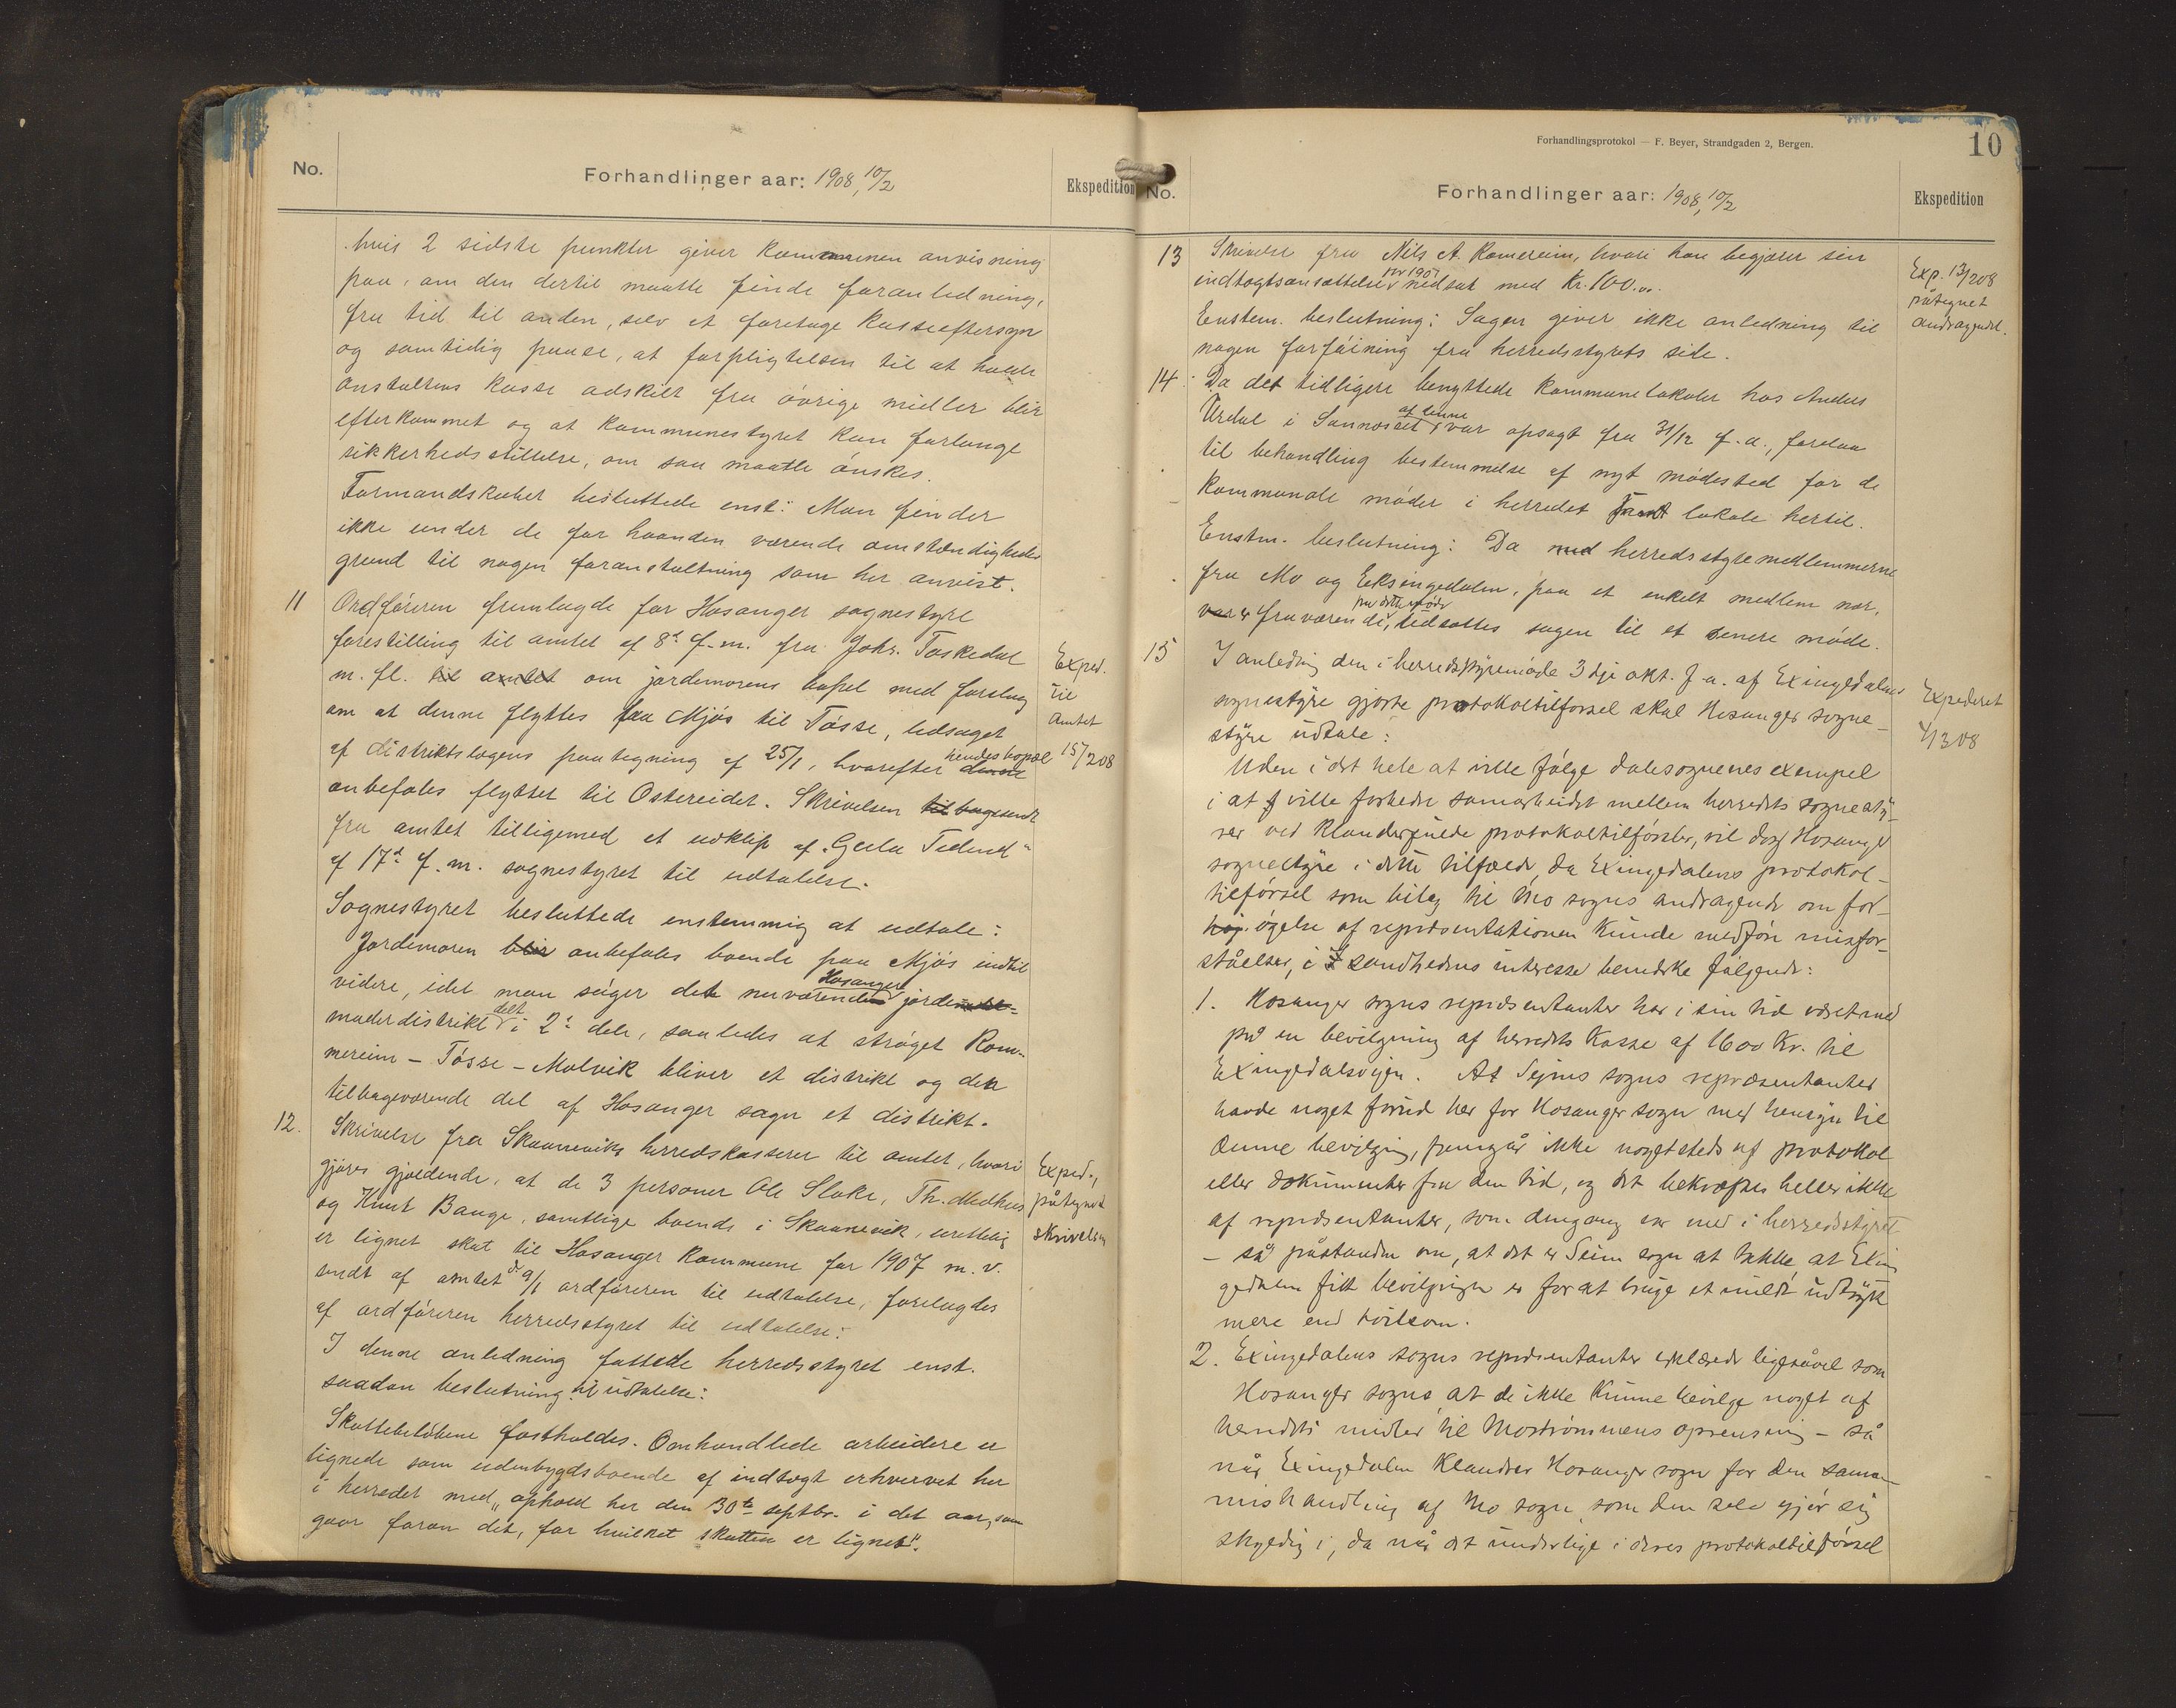 No.
Forhandlinger aar: 1908, 10/2
Ekspedition
hvis 2 sidste punkter giver kommunen anvisning
paa, om den dertil maatte finde foranledning,
fra tid til anden, selv at foretage kasseeftersyn
og samtidig paase, at forpligtelsen til at holde
anstaltens kasse adskilt fra övrige midler blir
efterkommet og at kommunestyret kan forlange
sikkerhedsstillelse, om saa maatte önskes.
Formandskabet besluttede enst: Man finder
ikke under de for haanden værende omstændigheder
grund til nogen foranstaltning som her anvist.
11 Ordföreren fremlagde for Hosanger sognestyre
forestilling til amtet af 8d f.m. fra Johs. Toskedal
m. fl. til amtet om jordemorens bopel med forslag
om at denne flyttes fra Mjös til Tösse, ledsaget
af distriktslægens paategning af 25/1, hvorefter denne hendes bopæl
anbefales flyttet til Ostereidet. Skrivelsen tilbagesendt
fra amtet tilligemed et udklip af "Gula Tidend"
af 17d f.m. sognestyret til udtalelse.
Exped.
til
Amtet
15/2 08
Sognestyret besluttede enstemmig at udtale:
Jordemoren blir anbefales boende paa Mjös indtil
videre, idet man söger det nuværende Hosanger jorde-
moderdistrikt delt i 2de dele, saaledes at ströget Rom-
mereim - Tösse - Molvik bliver et distrikt og den
tilbageværende del af Hosanger sogn et distrikt.
12. Skrivelse fra Skaaneviks herredskasserer til amtet, hvori
gjöres gjældende, at de 3 personer Ole Sloke, Th. Medhus
og Knut Bauge, samtlige boende i Skaanevik, urettelig
er lignet skat til Hosanger kommune for 1907 m.v.
sendt af amtet d. 9/1 ordföreren til udtalelse, forelagdes
af ordföreren herredsstyret til udtalelse:
Exped.,
påtegnet
skrivelsen
I denne anledning fattede herredsstyret enst.
saadan beslutning til udtalelse:
Skattebelöbene fastholdes. Omhandlede arbeidere er
lignede som udenbygdsboende af indtægt erhvervet her
i herredet med "ophold her den 30te septbr. i det aar, som
gaar foran det, for hvilket skatten er lignet".
Forhandlingsprotokol — F. Beyer, Strandgaden 2, Bergen.
10
No.
Forhandlinger aar: 1908, 10/2
Ekspedition
13 Skrivelse fra Nils A. Romereim, hvori han begjærer sin
indtægtsansættelse pr 1907 nedsat med Kr. 100.00.
Enstem. beslutning: Sagen giver ikke anledning til
nogen forföining fra herredsstyrets side.
Exp. 13/2 08
påtegnet
andragendet.
14 Da det tidligere benyttede kommunelokaler hos Anders
Urdal i Sannoset af denne var opsagt fra 31/12 f.a., forelaa
til behandling bestemmelse af nyt mödested for de
kommunale möder i herredet samt lokale hertil.
Enstm. beslutning: Da med herredsstyremedlemmerne
fra Mo og Eksingedalen, paa et enkelt medlem nær,
var er fraværende fra dette möde, udsættes sagen til et senere möde.
15 I anledning den i herredsstyremöde 3dje okt. f.a. af Exingedalens
sognestyre gjorte protokoltilförsel skal Hosanger sogne-
styre udtale:
Expederet
4/3 08
Uden i det hele at ville fölge dalesognenes exempel
i at f ville forhedre samarbeidet mellem herredets sognesty-
rer ved klanderfulde protokoltilförsler, vil dog Hosanger
sognestyre i dette tilfælde, da Exingedalens protokol-
tilförsel som bilag til Mo sogns andragende om for-
höi. ögelse af repræsentationen kunde medföre misfor-
ståelser, i S sandhedens interesse bemerke fölgende:
1. Hosanger sogns repræsentanter har i sin tid været med
på en bevilgning af herredets kasse af 1600 Kr. til
Exingedalsveien. At Sejms sogns repræsentanter
havde noget forud her for Hosanger sogn med hensyn til
denne bevilgning, fremgår ikke nogetsteds af protokol
eller dokumenter fra den tid, og det bekræftes heller ikke
af repræsentanter, som dengang var med i herredsstyret
- så påstanden om, at det er Seim sogn at takke, at Exin
gedalen fikk bevilgningen er for at bruge et mildt udtryk
mere end tvilsom.
2. Exingedalens sogns repræsentanter erklærede ligesåvel som
Hosanger sogns, at de ikke kunne bevilge noget af
herredets midler til Moströmmens oprensning - så
når Exingedalen klandrer Hosanger sogn for den samme
mishandling af Mo sogn, som den selv gjör sig
skyldig i, da når det underlige i deres protokoltilförsel